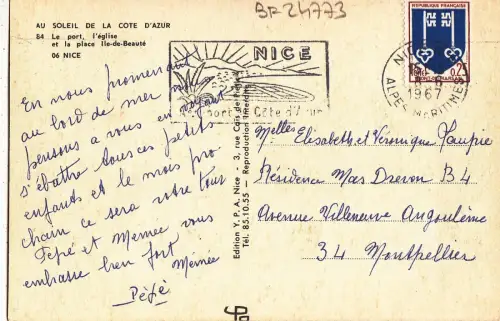 AU SOLEIL DE LA COTE D'AZUR
84 Le port, l'église
et la place Ile-de-Beauté
06 NICE
BF 24773
NICE
Côte d'Azur
REPUBLIQUE FRANÇAISE
0,25
MONT-DE-MARSAN
NICE
1967
ALPES MARITIMES
En nous promenant
au bord de mer nous
pensons a vous en voyant
s'ébattre tous ces petits
enfants et le mois pro
chain ce sera votre tour
Pépé et Mémée vous
embrasse bien fort
Mémée
Pépé
Edition Y.P.A. Nice - 3, rue
Tél. 85.10.55 - Reproduction Interdite
Melles Elisabeth et Véronique
Résidence Mas Drevon B4
Avenue Villeneuve Angoulème
34 Montpellier